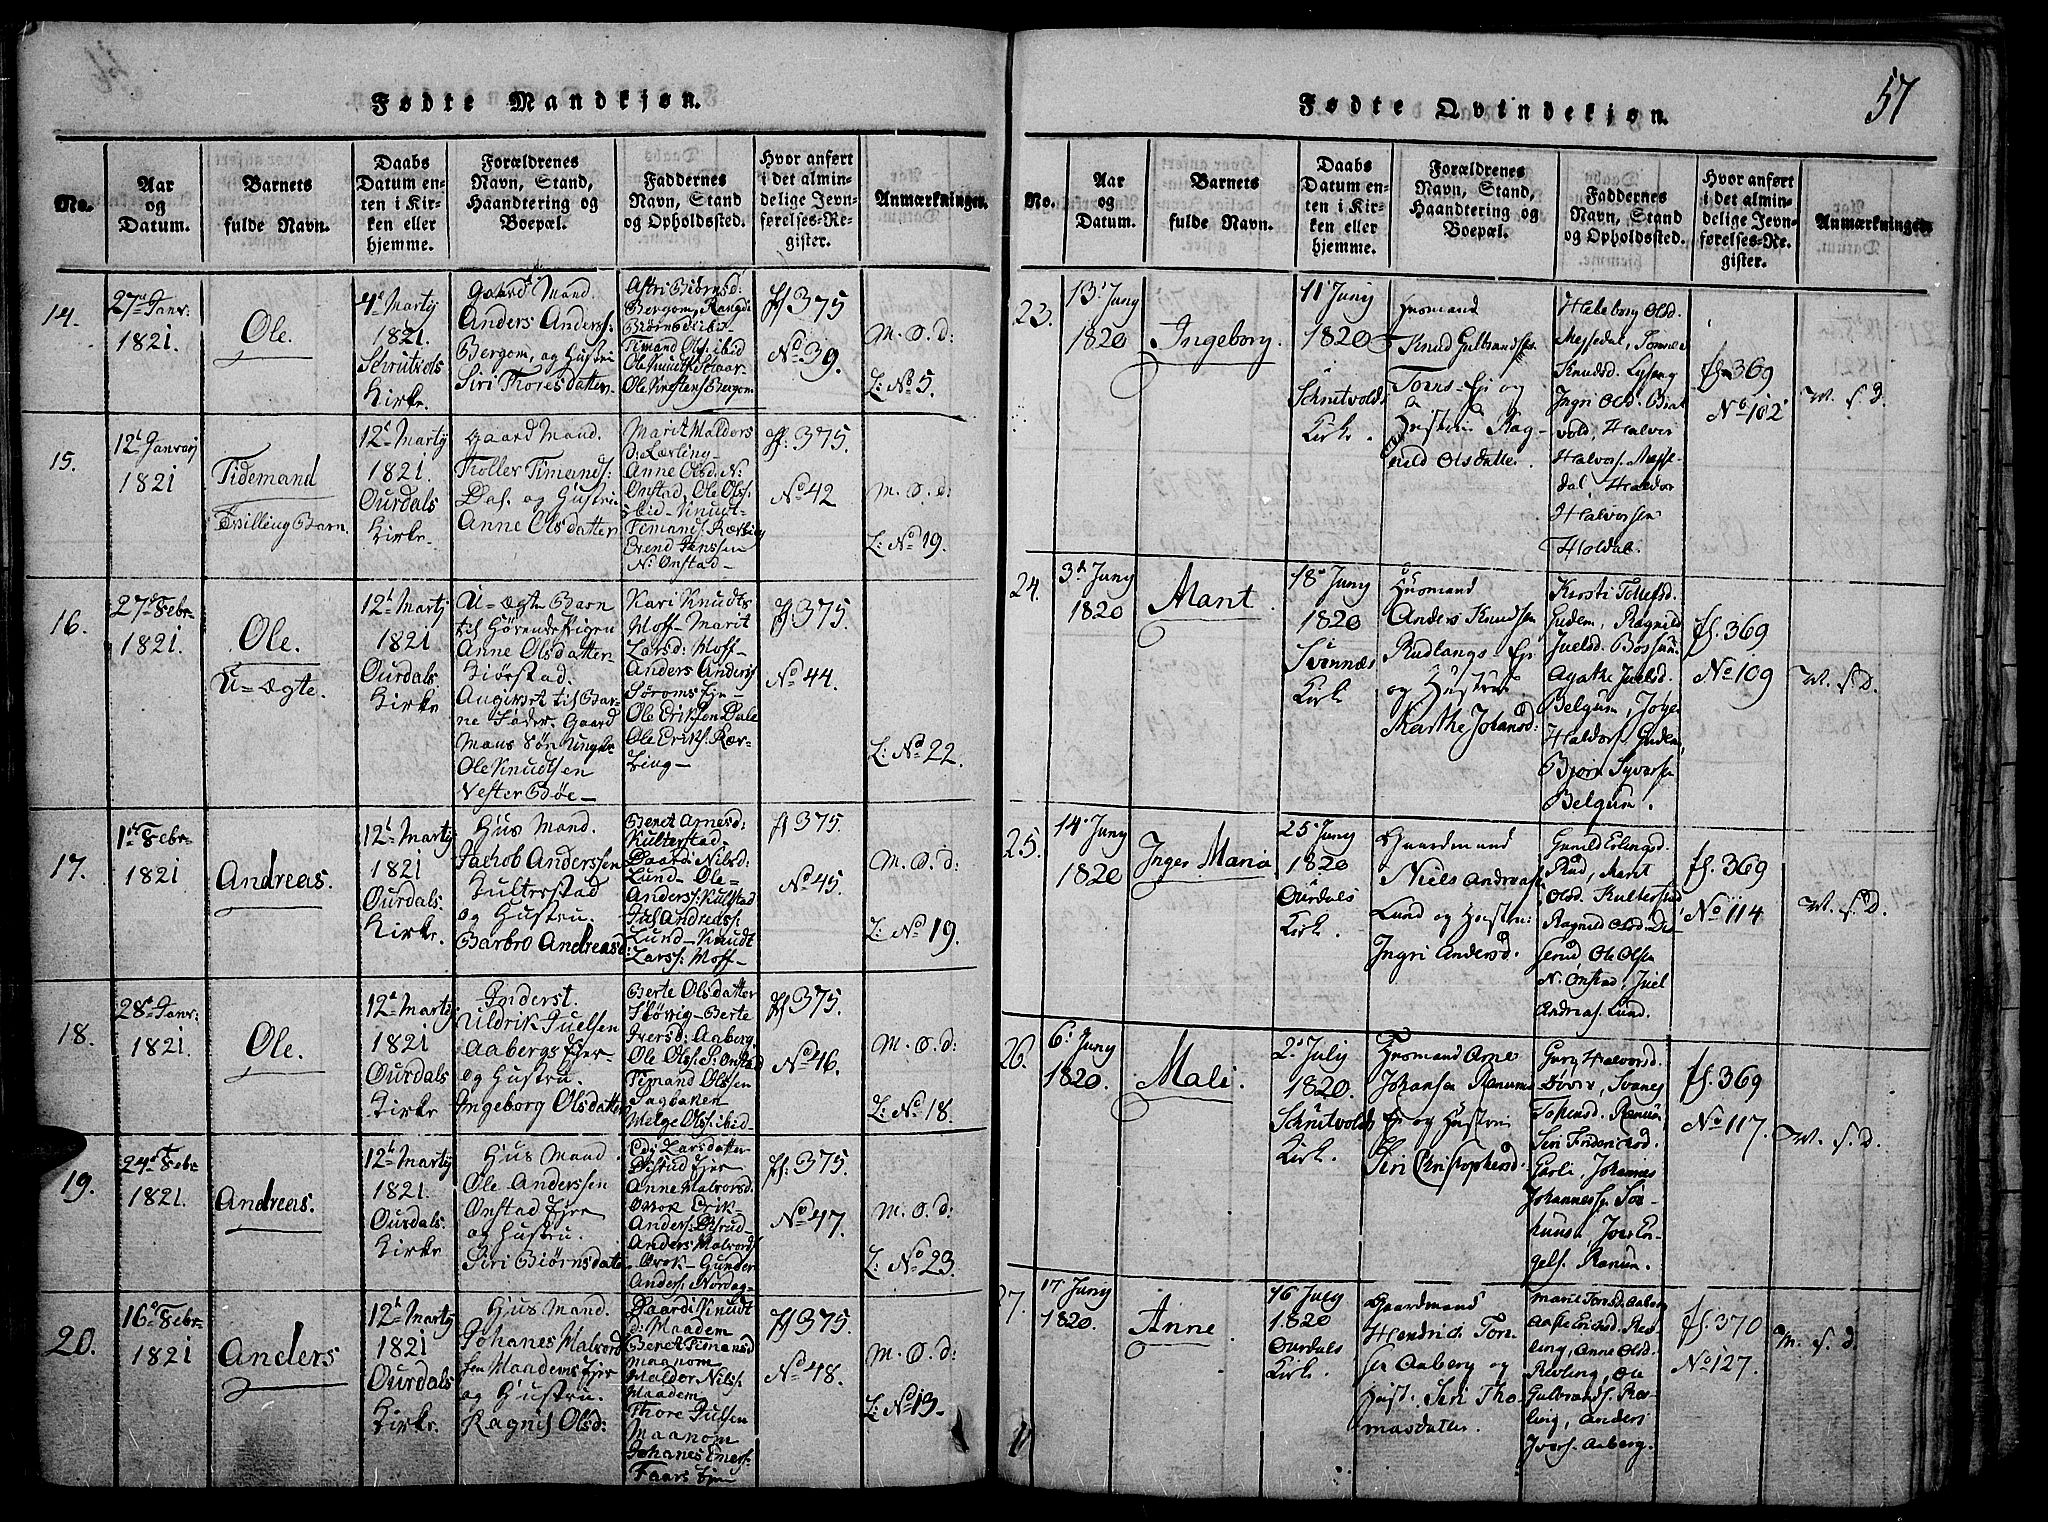 57
Fødte Mandkjøn.
No.
Aar
og
Datum.
Barnets
fulde Navn.
Daabs
Datum en-
ten i Kir-
ken eller
hjemme.
Forældrenes
Navn, Stand,
Haandtering og
Boepæl.
Faddernes
Navn, Stand
og Opholdssted.
Hvor anført
i det almin-
delige Jevn-
førelses-Re-
gister.
Anmærkninger.
14.
27de Janr:
1821.
Ole.
4de Martij
1821.
Kirke.
Gaard Mand.
Anders Anderss:
Bergom, og Hustru
Siri Thoresdatter
Astri Biørnsd:
Bergom, Rangdi
Biørnsd: ibid-
Timand Olss: ibid
Ole Knudss:
Bergom
fl 375
No 39.
M. O. d:
L: No 5.
15.
12te Janvarij
1821
Tidemand
Tvilling Barn.
12te Martij
1821
Ourdals
Kirke.
Gaard Mand.
Tholler Timands:
og Hustru
Anne Olsdatter
Marit Haldors
d:
Anne Olsd: N:
Onstad, Ole Olss:
ibid - Knudt
Timands:
Erend Janssen
N: Onstad -
fl: 375.
No 42
M. O. d:
L: No 19.
16.
27de Febr:
1821.
Ole.
U-ægte.
12te Martij
1821
Ourdals
Kirke
U-ægte Barn
Anne Olsdatter
Kiørstad.
Angivet til Bar-
ne Fader. Gaard
Mans Søn Ungk:
Ole Knudtsen
Vester Bøe -
Kari Knudts
Moff - Marit
Larsd: Moff -
Anders Anders
Ole Eriksen Dale
Ole Eriks: Rær-
ling -
fl 375.
No 44.
L: No 22.
17.
1de Febr:
1821
Andreas.
12te Martij
1821
Ourdals.
Kirke.
Hus Mand.
Jacob Anderssen
Kulterstad
og Hustru.
Barbro Andreasd:
Beret Arnesd:
Kulterstad -
Baardi Nilsd:
Lund - Ole -
Anderss: Kultstad
Jul Andreass:
Lund - Knudt
Larss: Moff -
fl 375.
No 45.
M. O. d:
L: No 19.
18.
28de Janr:
1821.
Ole.
12te Martij
1821
Ourdals
Kirke
Inderst.
Uldrik Juelsen
Aabergs Ejer
og Hustru.
Ingeborg Olsdatter
Berte Olsdatter
Berte
Iversd: Aaberg.
Ole Olss: P: Onstad
Timand Olssen
Helge Olss: ibid
fl 375.
No 46.
M. O. d:
L: No 18.
19.
24de Febr
1821.
Andreas.
12te Martij
1821.
Ourdals
Kirke
Hus Mand.
Ole Anderssen
Onstad Ejer
og Hustru.
Siri Biørnsdatter
Larsdatter
Anne Halvorsd:
Erik-
Anders
Anders Halvords
Gunder
Anders: Nordag-
fl: 375.
No 47.
M. O. d:
L: No 23.
20.
16de Febr
1821
Anders
12te Martij
1821
Ourdals
Kirke
Hus Mand.
Johanes Halvord
sen Maadems Ejer
og Hustru.
Ragnil Olsd:
Baardi Knudt
d: Maadem
Beret Timansd
Maanom
Haldor Nilss:
Maadem
Thore Julsen
Maanom
Johanes Emerss:
fl 375.
No 48.
M. O. d:
L: No 13.
Fødte Qvindekjøn.
No.
Aar
og
Datum.
Barnets
fulde Navn.
Daabs
Datum en-
ten i Kir-
ken eller
hjemme.
Forældrenes
Navn, Stand,
Haandtering og
Boepæl.
Faddernes
Navn, Stand
og Opholdssted.
Hvor anført
i det almin-
delige Jevn-
førelses-Re-
gister.
Anmærkninger
23.
13de Juny
1820
Ingeborg.
11te Juny
1820
Schrutvolds
Kirke.
Huusmand
Knud Gulbrandss.
og
Hustrue Rag-
nild Olsdatter.
Olsd.
Messedal,
Knudsd.
Ingri Olsd.
vold, Halvor
Halvors. Messe-
dal, Haldor
Halvorsen
Holdal.
fl. 369
No 102
M. s. d.
24.
3de Juny
1820
Marit
18de Juny
1820
Svennæs
Kirke
Huusmand
Anders Knudsen
Rudlangs Ej
og Hustrue
Marthe Johansd:
Kirsti Tollefsd.
Gudem, Ragnild
Juelsd.
Agathe Juelsd.
Belgum,
Haldors. Gudem,
Bjørn Syversen
Belgum.
fl. 369
No 109
M. s. d.
25.
14de Juny
1820
Inger Maria
25de Juny
1820
Ourdals
Kirke.
Gaardmand
Niels Andreas.
Lund og Hustrue
Ingri Andersd.
Gunild Erlingsd.
Rud, Marit
Olsd. Kulterstad
Ragnild Olsd.
Ole Olsen
N. Onstad, Juel
Andreas. Lund.
fl. 369
No 114
M. s. d.
26.
6te Juny
1820.
Mali.
2de July
1820.
Schrutvolds
Kirke.
Huusmand Arne
Johansen Ranums
Ej og Hustrue
Siri Christophersd.
Gury Halvorsd.
Ranum
Siri Frederichsd.
Johannes
Johannessen
gels. Ranum.
fl. 369
No 117.
M. s. d.
27.
17 Juny
1820.
Anne.
16 July
1820
Ourdals
Kirke
Gaardmand
Hendrich Tor-
sen Aaberg og
Hust. Siri Tho-
masdatter.
Marit Torsd. Aaberg
ling, Anne Olsd.
Ole
Gulbrands.
ling, Anders
Ivers. Aaberg.
fl. 370
No 127.
M. s. d.